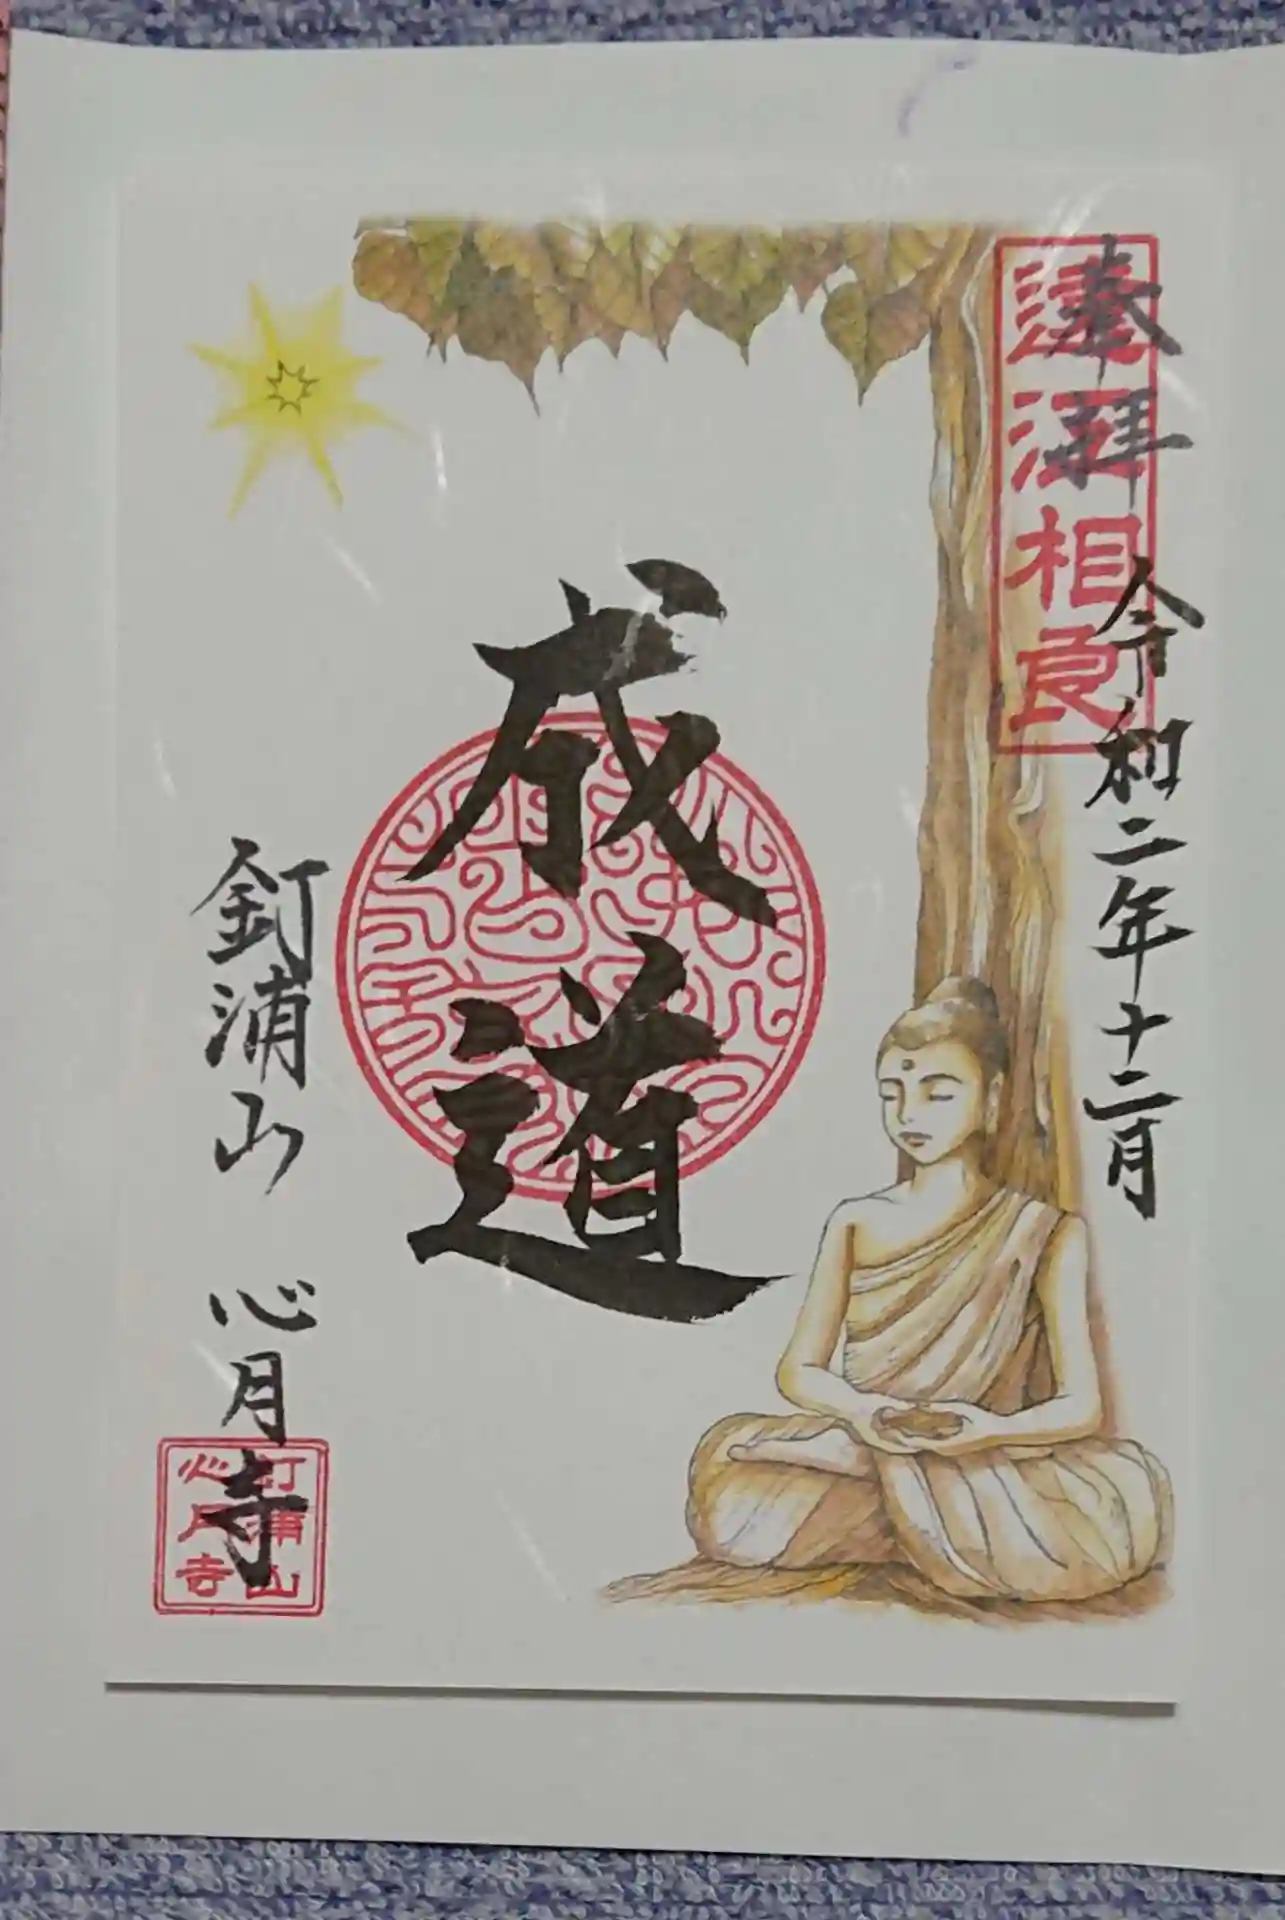 奉拝
令和二年十二月
遠江相良
成道
釘浦山 心月寺
釘浦山
心月寺